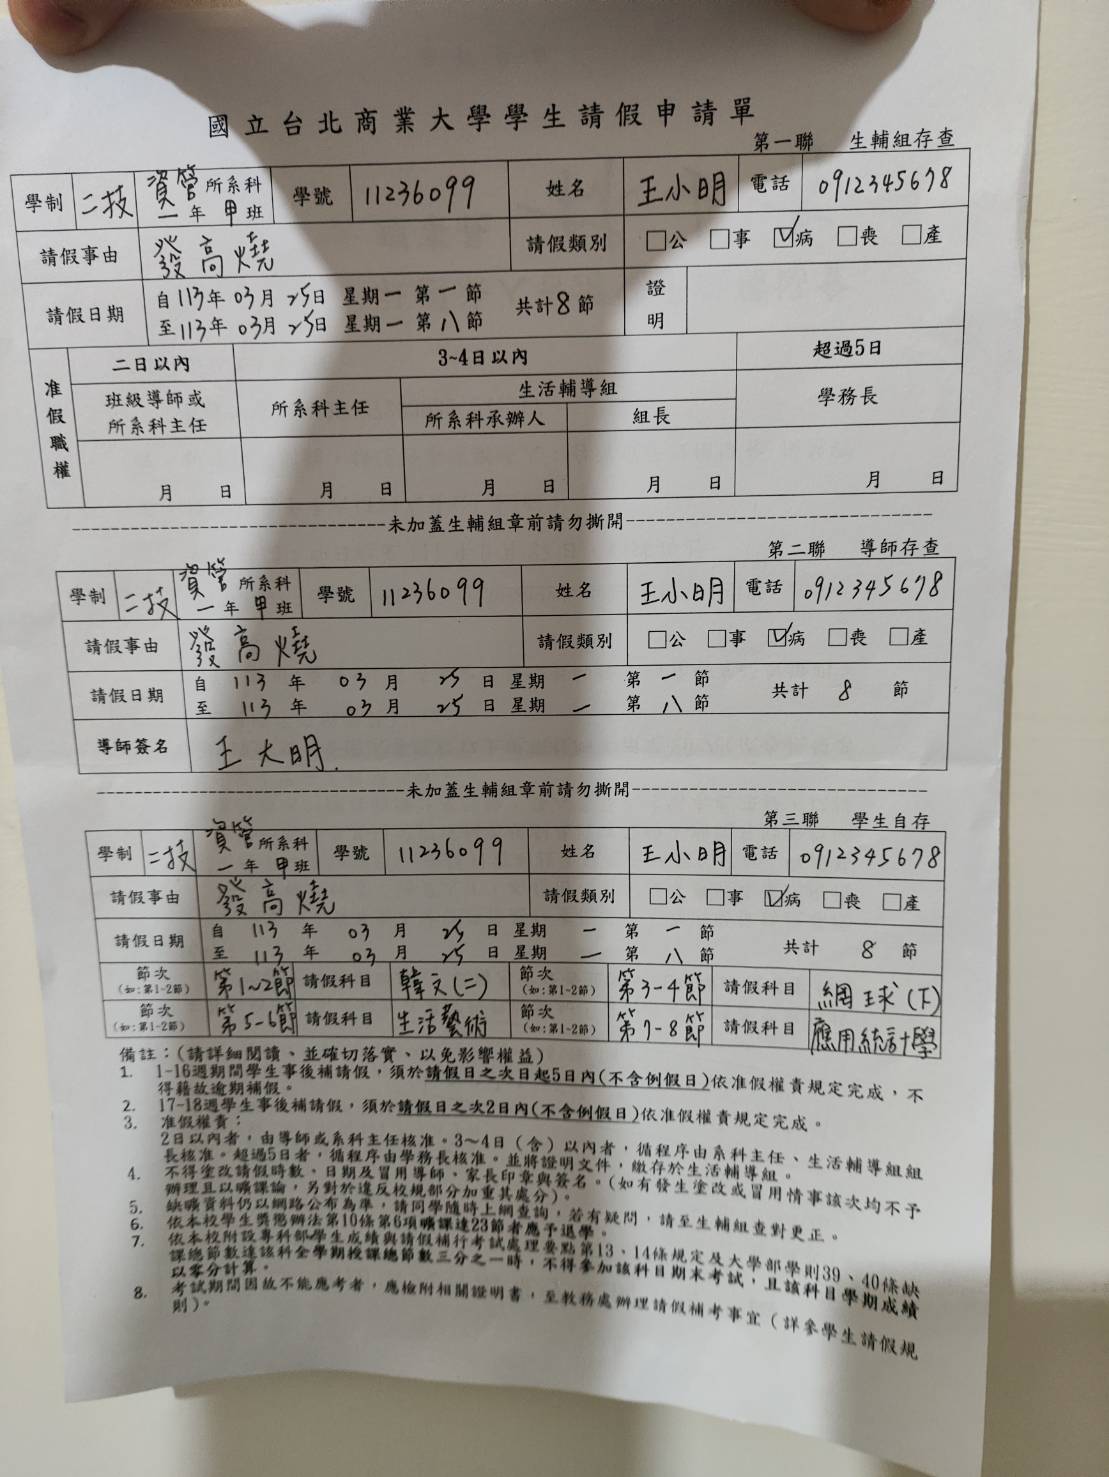 國立台北商業大學學生請假申請單
第一聯 生輔組存查
學制 二技 資管 所系科 一年甲班 學號 11236099 姓名 王小明 電話 0912345678
請假事由 發高燒 請假類別 □公 □事 ☑病 □喪 □產
請假日期 自113年03月25日 星期一 第一節 共計8節 證明
至113年03月25日 星期一 第八節
准假職權 二日以內 3~4日以內 超過5日
班級導師或所系科主任 所系科主任 生活輔導組 學務長
所系科承辦人 組長
月 日 月 日 月 日 月 日 月 日
未加蓋生輔組章前請勿撕開
第二聯 導師存查
學制 二技 資管 所系科 一年甲班 學號 11236099 姓名 王小明 電話 0912345678
請假事由 發高燒 請假類別 □公 □事 ☑病 □喪 □產
請假日期 自 113 年 03 月 25 日 星期 一 第 一 節 共計 8 節
至 113 年 03 月 25 日 星期 一 第 八 節
導師簽名 王大明.
未加蓋生輔組章前請勿撕開
第三聯 學生自存
學制 二技 資管 所系科 一年甲班 學號 11236099 姓名 王小明 電話 0912345678
請假事由 發高燒 請假類別 □公 □事 ☑病 □喪 □產
請假日期 自 113 年 03 月 25 日 星期 一 第 一 節 共計 8 節
至 113 年 03 月 25 日 星期 一 第 八 節
節次(如:第1-2節) 第1~2節 請假科目 韓文(二) 節次(如:第1-2節) 第3-4節 請假科目 網球(下)
節次(如:第1-2節) 第5-6節 請假科目 生活藝術 節次(如:第1-2節) 第7-8節 請假科目 應用統計學
備註:(請詳細閱讀、並確切落實、以免影響權益)
1. 1-16週期間學生事後補請假,須於請假日之次日起5日內(不含例假日)依准假權責規定完成,不
得藉故逾期補假。
2. 17-18週學生事後補請假,須於請假日之次2日內(不含例假日)依准假權責規定完成。
3. 准假權責:
2日以內者,由導師或系科主任核准。3~4日(含)以內者,循程序由系科主任、生活輔導組組
長核准。超過5日者,循程序由學務長核准。並將證明文件,繳存於生活輔導組。
4. 不得塗改請假時數、日期及冒用導師、家長印章與簽名。(如有發生塗改或冒用情事該次均不予
辦理且以曠課論,另對於違反校規部分加重其處分)。
5. 缺曠資料仍以網路公布為準,請同學隨時上網查詢,若有疑問,請至生輔組查對更正。
6. 依本校學生獎懲辦法第10條第6項曠課達23節者應予退學。
7. 依本校附設專科部學生成績與請假補行考試處理要點第13、14條規定及大學部學則39、40條缺
課總節數達該科全學期授課總節數三分之一時,不得參加該科目期末考試,且該科目學期成績
以零分計算。
8. 考試期間因故不能應考者,應檢附相關證明書,至教務處辦理請假補考事宜(詳參學生請假規
則)。